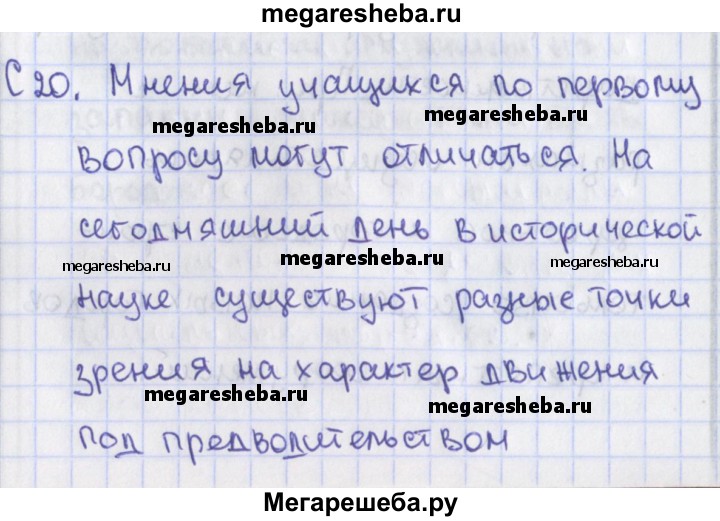 megaresheba.ru
С 20. Мнения учащихся по первому
megaresheba.ru megaresheba.ru
вопросу могут отличаться. На
сегодняшний день в исторической
megaresheba.ru megaresheba.ru megaresheba.ru
науке существуют разные точки
зрения на характер движения
megaresheba.ru megaresheba.ru
под предводительством
Мегарешеба.ру